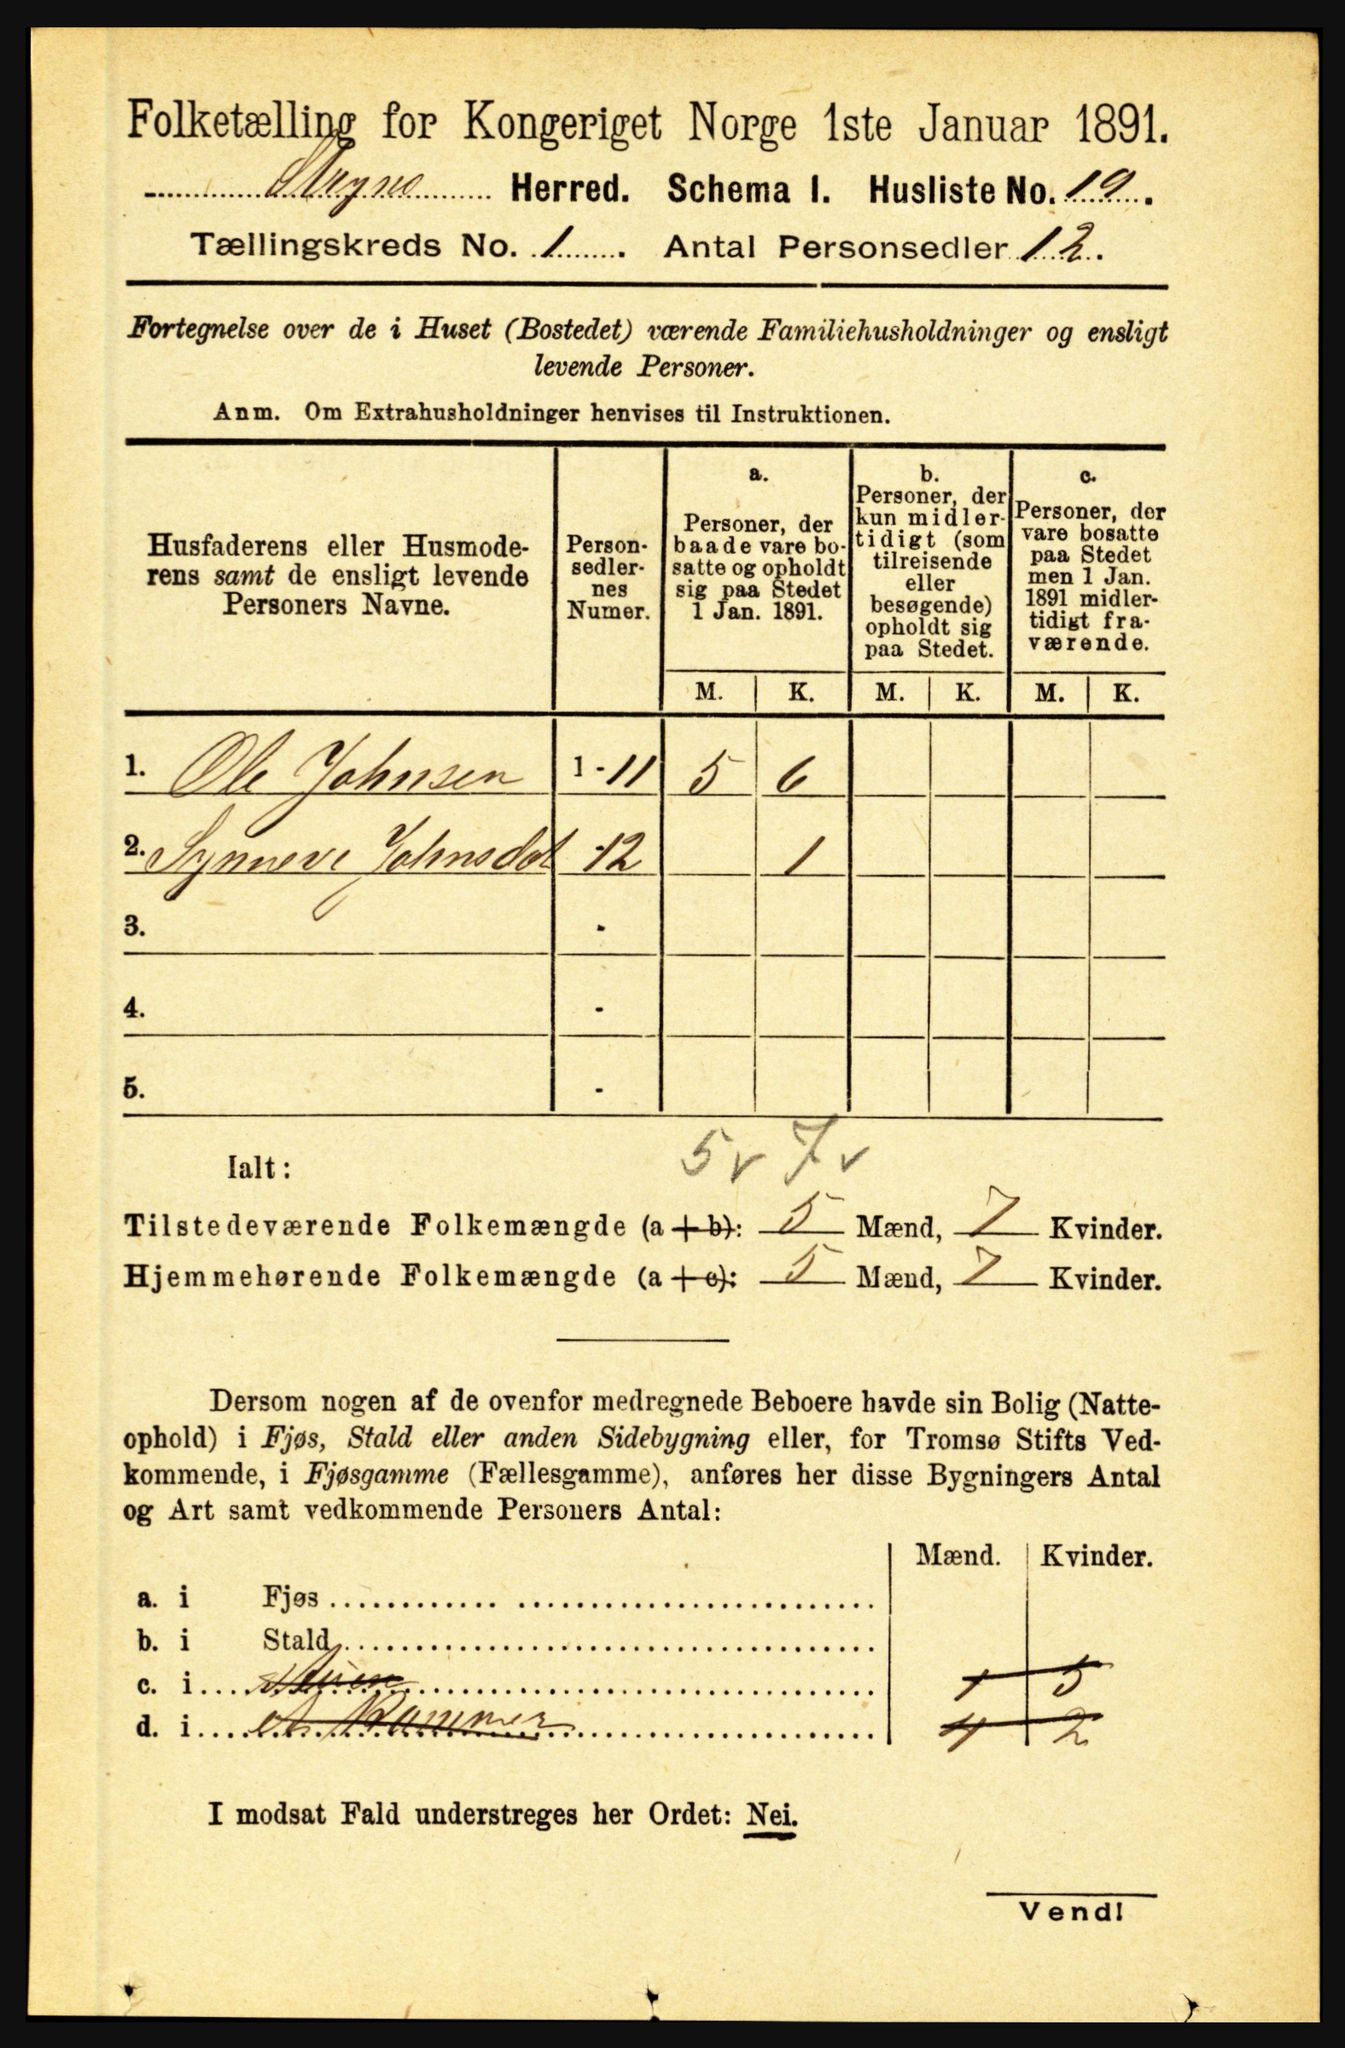 Folketælling for Kongeriget Norge 1ste Januar 1891.
Stryns Herred. Schema I. Husliste No. 19.
Tællingskreds No. 1. Antal Personsedler 12.
Fortegnelse over de i Huset (Bostedet) værende Familiehusholdninger og ensligt
levende Personer.
Anm. Om Extrahusholdninger henvises til Instruktionen.
Husfaderens eller Husmode-
rens samt de ensligt levende
Personers Navne.
Person-
sedler-
nes
Numer.
a.
Personer, der
baade vare bo-
satte og opholdt
sig paa Stedet
1 Jan. 1891.
b.
Personer, der
kun midler-
tidigt (som
tilreisende
eller
besøgende)
opholdt sig
paa Stedet.
c.
Personer, der
vare bosatte
paa Stedet
men 1 Jan.
1891 midler-
tidigt fra-
værende.
M. K. M. K. M. K.
1. Ole Johnsen 1-11 5 6
2. Synneve Johnsdot -12 1
3. -
4. -
5. -
5 v 7 v
Ialt:
Tilstedeværende Folkemængde (a + b): 5 Mænd, 7 Kvinder.
Hjemmehørende Folkemængde (a + c): 5 Mænd, 7 Kvinder.
Dersom nogen af de ovenfor medregnede Beboere havde sin Bolig (Natte-
ophold) i Fjøs, Stald eller anden Sidebygning eller, for Tromsø Stifts Ved-
kommende, i Fjøsgamme (Fællesgamme), anføres her disse Bygningers Antal
og Art samt vedkommende Personers Antal:
Mænd. Kvinder.
a. i Fjøs
b. i Stald
c. i Stuen 1 5
d. i et Kammer 4 2
I modsat Fald understreges her Ordet: Nei.
Vend!